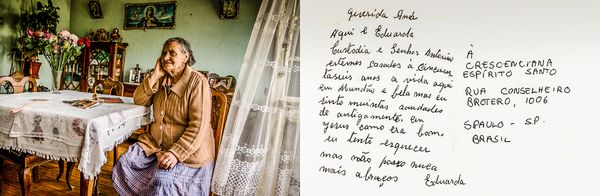 Querida Ana
Aqui é Eduarda
Custodia e Senhor Antonio
estamos casados à
anos a vida aqui
em e bela mas eu
sinto muintas
de antigamente em
como era bom.
eu tento esquecer
mas não posso nunca
mais abraços Eduarda
À
CRESCENCIANA
ESPÍRITO SANTO
RUA CONSELHEIRO
BROTERO, 1006
SPAULO - S.P.
BRASIL